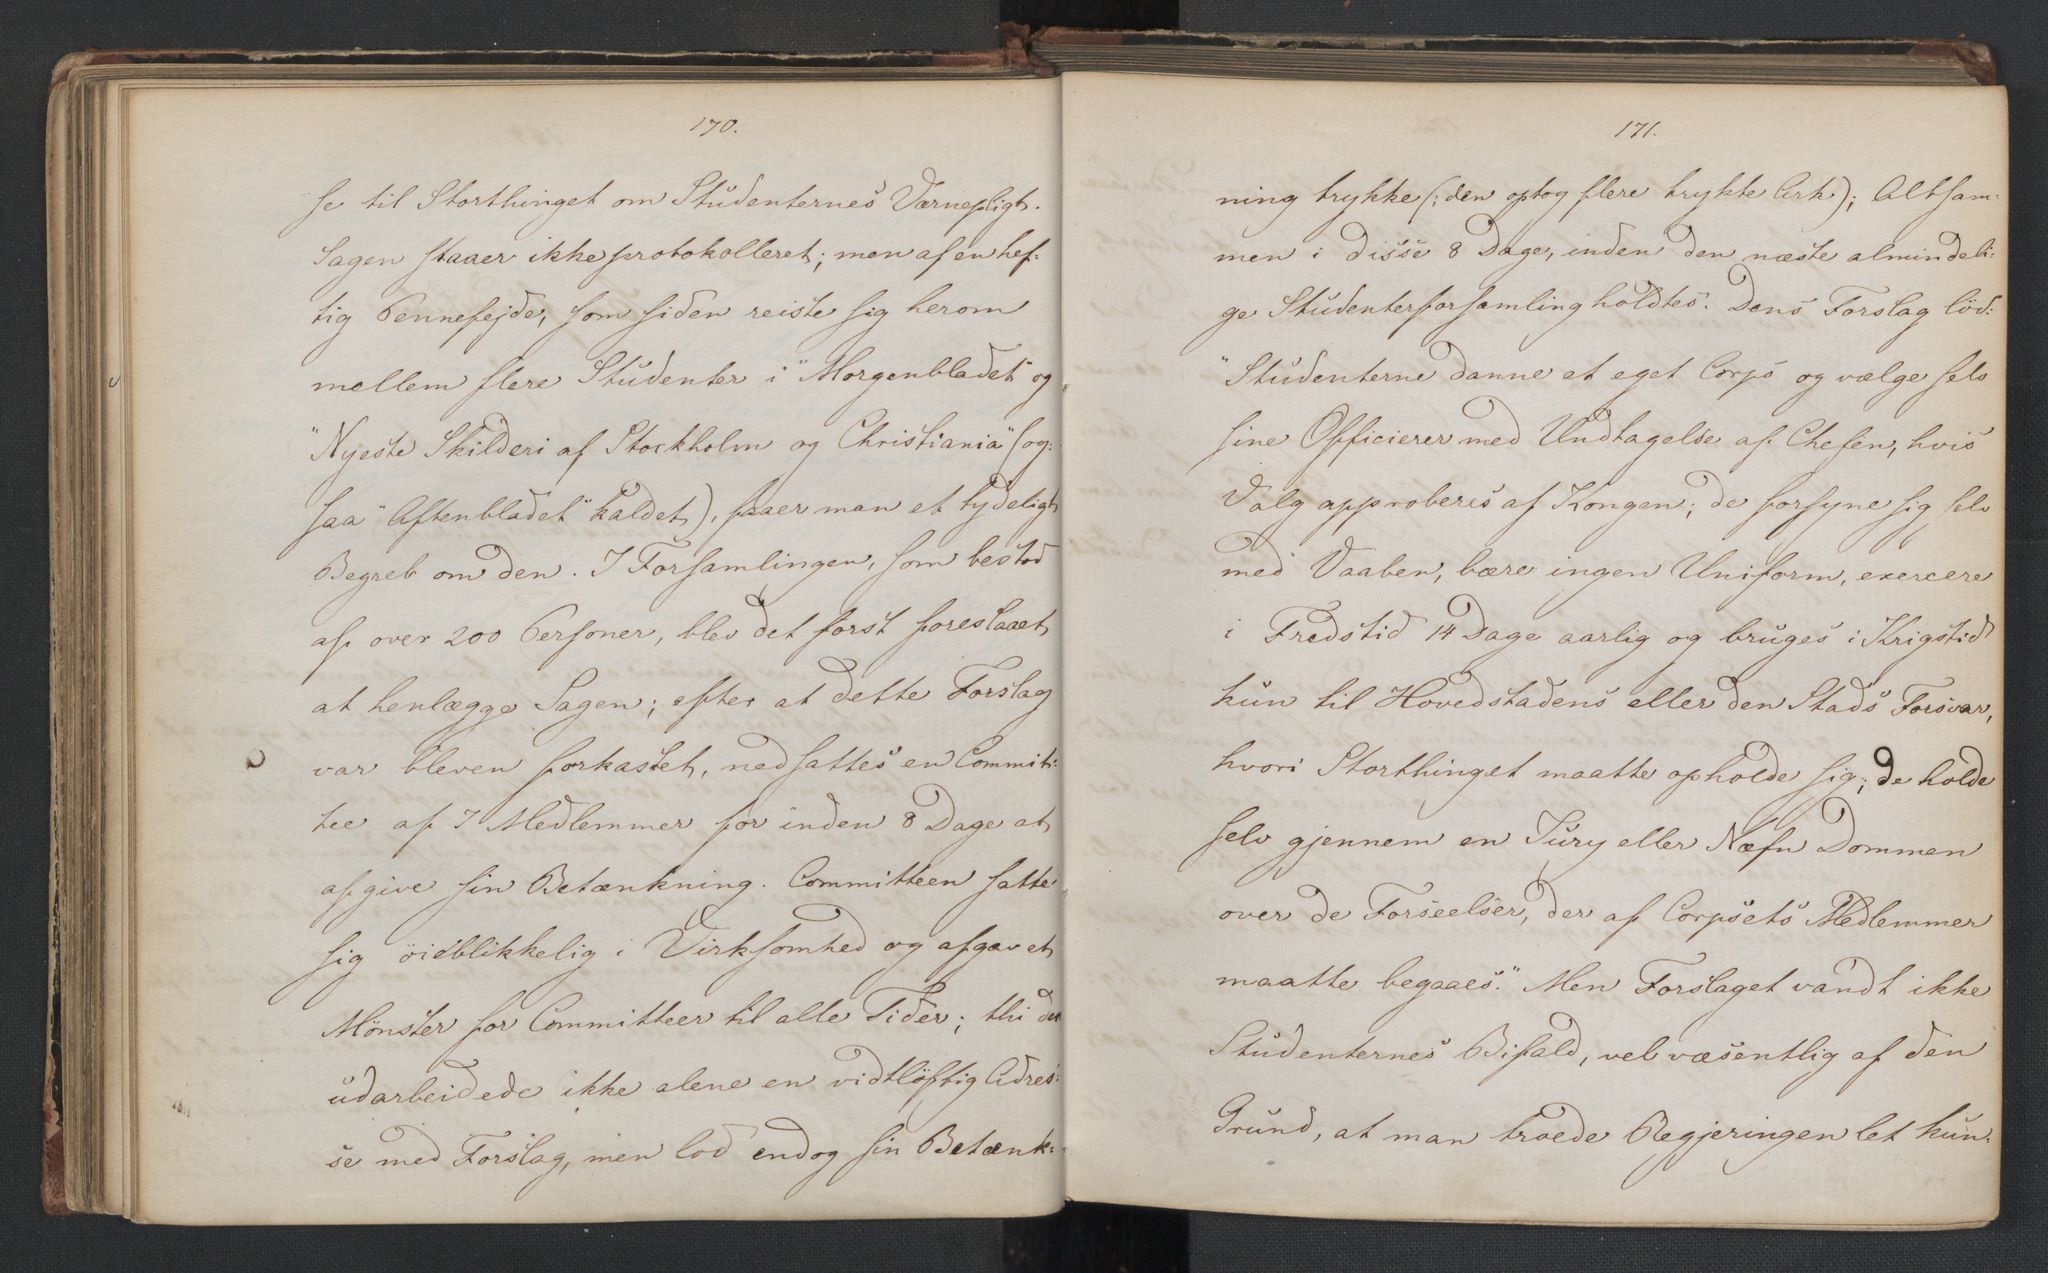 170.
se til Storthinget om Studenternes Værnepligt.
Sagen staaer ikke protokolleret; men af en hef-
tig Pennefejde, som siden reiste sig herom
mellem flere Studenter i "Morgenbladet" og
"Nyeste Skilderi af Stockholm og Christiania" (og-
saa "Aftenbladet" kaldet), faaer man et tydeligt
Begreb om den. I Forsamlingen, som bestod
af over 200 Personer, blev det først foreslaaet
at henlægge Sagen; efter at dette Forslag
var bleven forkastet, nedsattes en Commit-
tee af 7 Medlemmer for inden 8 Dage at
afgive sin Betænkning. Committeen satte
sig öieblikkelig i Virksomhed og afgav et
Mönster for Committeer til alle Tider; thi den
udarbeidede ikke alene en vidtlöftig Adres-
se med Forslag, men lod endog sin Betænk-
171.
ning trykke (: den optog flere trykte Ark :); Altsam-
men i disse 8 Dage, inden den næste almindeli-
ge Studenterforsamling holdtes. Dens Forslag löd:
"Studenterne danne et eget Corps og vælge selv
sine Officierer med Undtagelse af Chefen, hvis
Valg approberes af Kongen; de forsyne sig selv
med Vaaben, bære ingen Uniform, exercere
i Fredstid 14 Dage aarlig og bruges i Krigstid
kun til Hovedstadens eller den Stads Forsvar,
hvori Storthinget maatte opholde sig; de holde
selv gjennem en Jury eller Næfn Dommen
over de Forseelser, der af Corpsets Medlemmer
maatte begaaes." Men Forslaget vandt ikke
Studenternes Bifald, vel væsentlig af den
Grund, at man troede Regjeringen let kun-